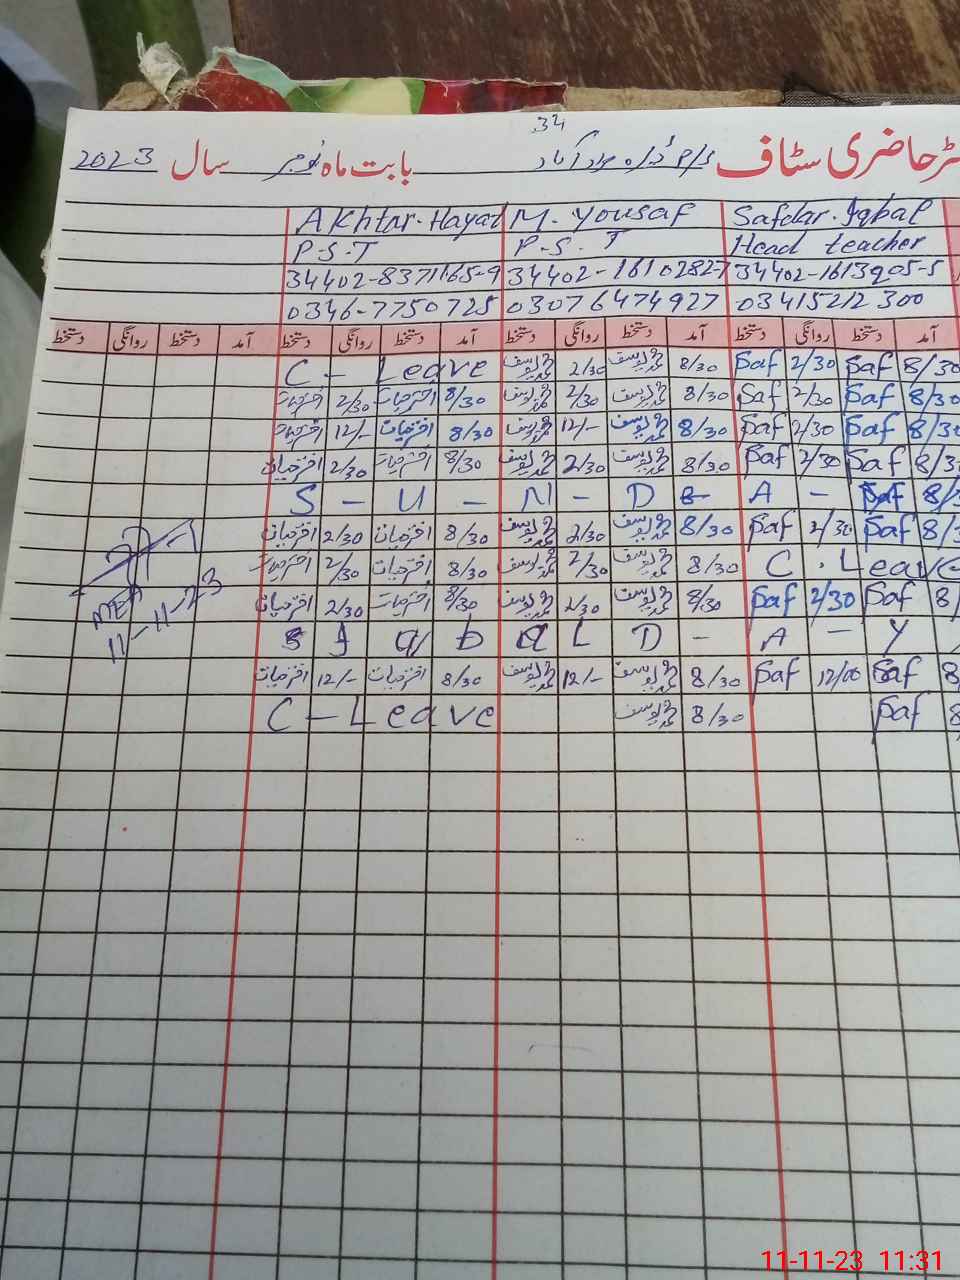 34
ٹر حاضری سٹاف بابت ماہ نومبر سال 2023
Akhtar. Hayat M. Yousaf Safdar. Iqbal
P.S.T P.S.T Head teacher
34402-8371165-9 34402-1610282-7 34402-1613905-5
0346-7750725 03076474927 03415212300
آمد دستخط روانگی دستخط آمد دستخط روانگی دستخط آمد دستخط روانگی دستخط آمد دستخط روانگی دستخط
C - Leave محمد یوسف 2/30 محمد یوسف 8/30 Saf 2/30 Saf 8/30
اختر حیات 2/30 اختر حیات 8/30 محمد یوسف 2/30 محمد یوسف 8/30 Saf 2/30 Saf 8/30
اختر حیات 12/- اختر حیات 8/30 محمد یوسف 12/- محمد یوسف 8/30 Saf 2/30 Saf 8/30
اختر حیات 2/30 اختر حیات 8/30 محمد یوسف 2/30 محمد یوسف 8/30 Saf 2/30 Saf 8/3
S - U - N - D - A - Saf 8/3
اختر حیات 2/30 اختر حیات 8/30 محمد یوسف 2/30 محمد یوسف 8/30 Saf 2/30 Saf 8/3
اختر حیات 2/30 اختر حیات 8/30 محمد یوسف 2/30 محمد یوسف 8/30 C. Leave
اختر حیات 2/30 اختر حیات 8/30 محمد یوسف 2/30 محمد یوسف 8/30 Saf 2/30 Saf 8/
D - A - Y
اختر حیات 12/- اختر حیات 8/30 محمد یوسف 12/- محمد یوسف 8/30 Saf 12/00 Saf 8
C - Leave محمد یوسف 8/30 Saf 8
MEA
11-11-23
11-11-23 11:31